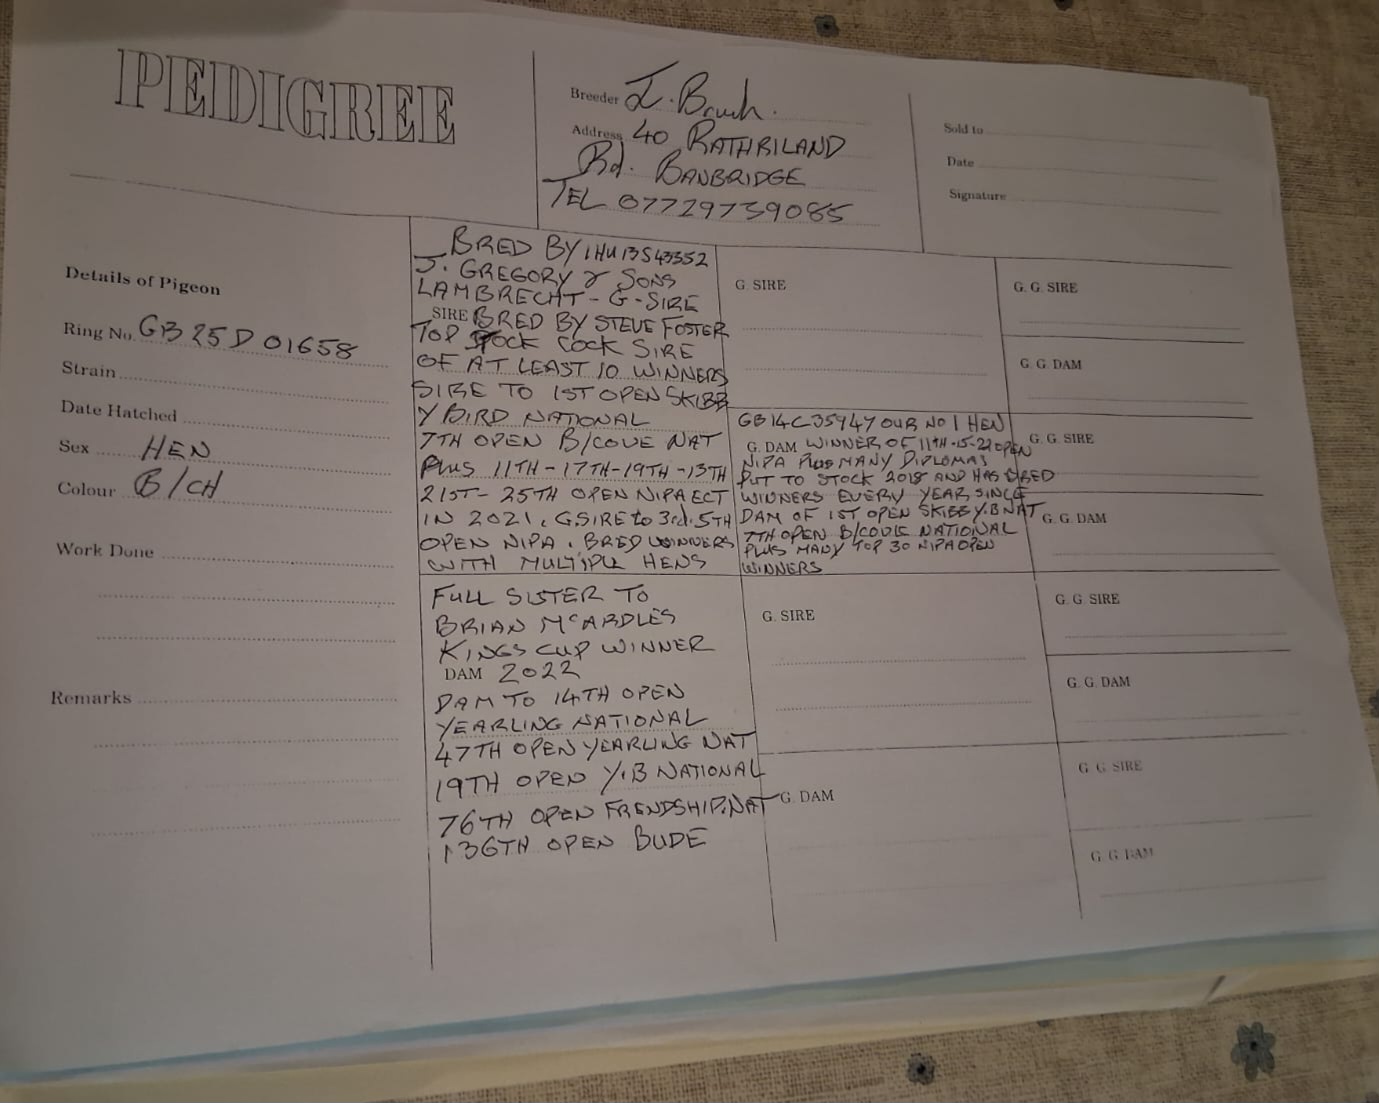 PEDIGREE
Breeder I. B
Address 40 RATHRILAND
Rd. BANBRIDGE
TEL 07729739085
Sold to
Date
Signature
Details of Pigeon
Ring No. GB 25 D 01658
Strain
Date Hatched
Sex HEN
Colour B/CH
Work Done
Remarks
BRED BY IHU13S43352
J. GREGORY & SONS
LAMBRECHT - G-SIRE
SIRE BRED BY STEVE FOSTER
TOP STOCK COCK SIRE
OF AT LEAST 10 WINNERS
SIRE TO 1ST OPEN SKIBB
Y BIRD NATIONAL
7TH OPEN B/COVE NAT
PLUS 11TH-17TH-19TH-13TH
21ST-25TH OPEN NIPA ECT
IN 2021. GSIRE to 3rd. 5TH
OPEN NIPA. BRED WINNERS
WITH MULTIPLE HENS
FULL SISTER TO
BRIAN McARDLES
KINGS CUP WINNER
DAM 2022
DAM TO 14TH OPEN
YEARLING NATIONAL
47TH OPEN YEARLING NAT
19TH OPEN Y.B NATIONAL
76TH OPEN FRENDSHIP.NAT
136TH OPEN BUDE
G. SIRE
GB14C35947 OUR NO 1 HEN
G. DAM WINNER OF 11TH-15-22 OPEN
NIPA PLUS MANY DIPLOMAS
PUT TO STOCK 2018 AND HAS BRED
WINNERS EVERY YEAR SINCE
DAM OF 1ST OPEN SKIBB Y.B NAT
7TH OPEN B/COVE NATIONAL
PLUS MANY TOP 30 NIPA OPEN
WINNERS
G. SIRE
G. DAM
G. G. SIRE
G. G. DAM
G. G. SIRE
G. G. DAM
G. G. SIRE
G. G. DAM
G. G. SIRE
G. G. DAM